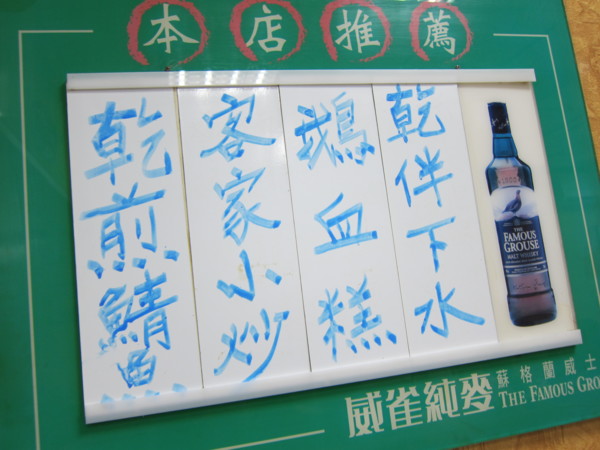 本店推薦
乾伴下水
鵝血糕
客家小炒
乾煎鯖魚
THE
FAMOUS
GROUSE
MALT WHISKY
威雀純麥
蘇格蘭威士
THE FAMOUS GRO